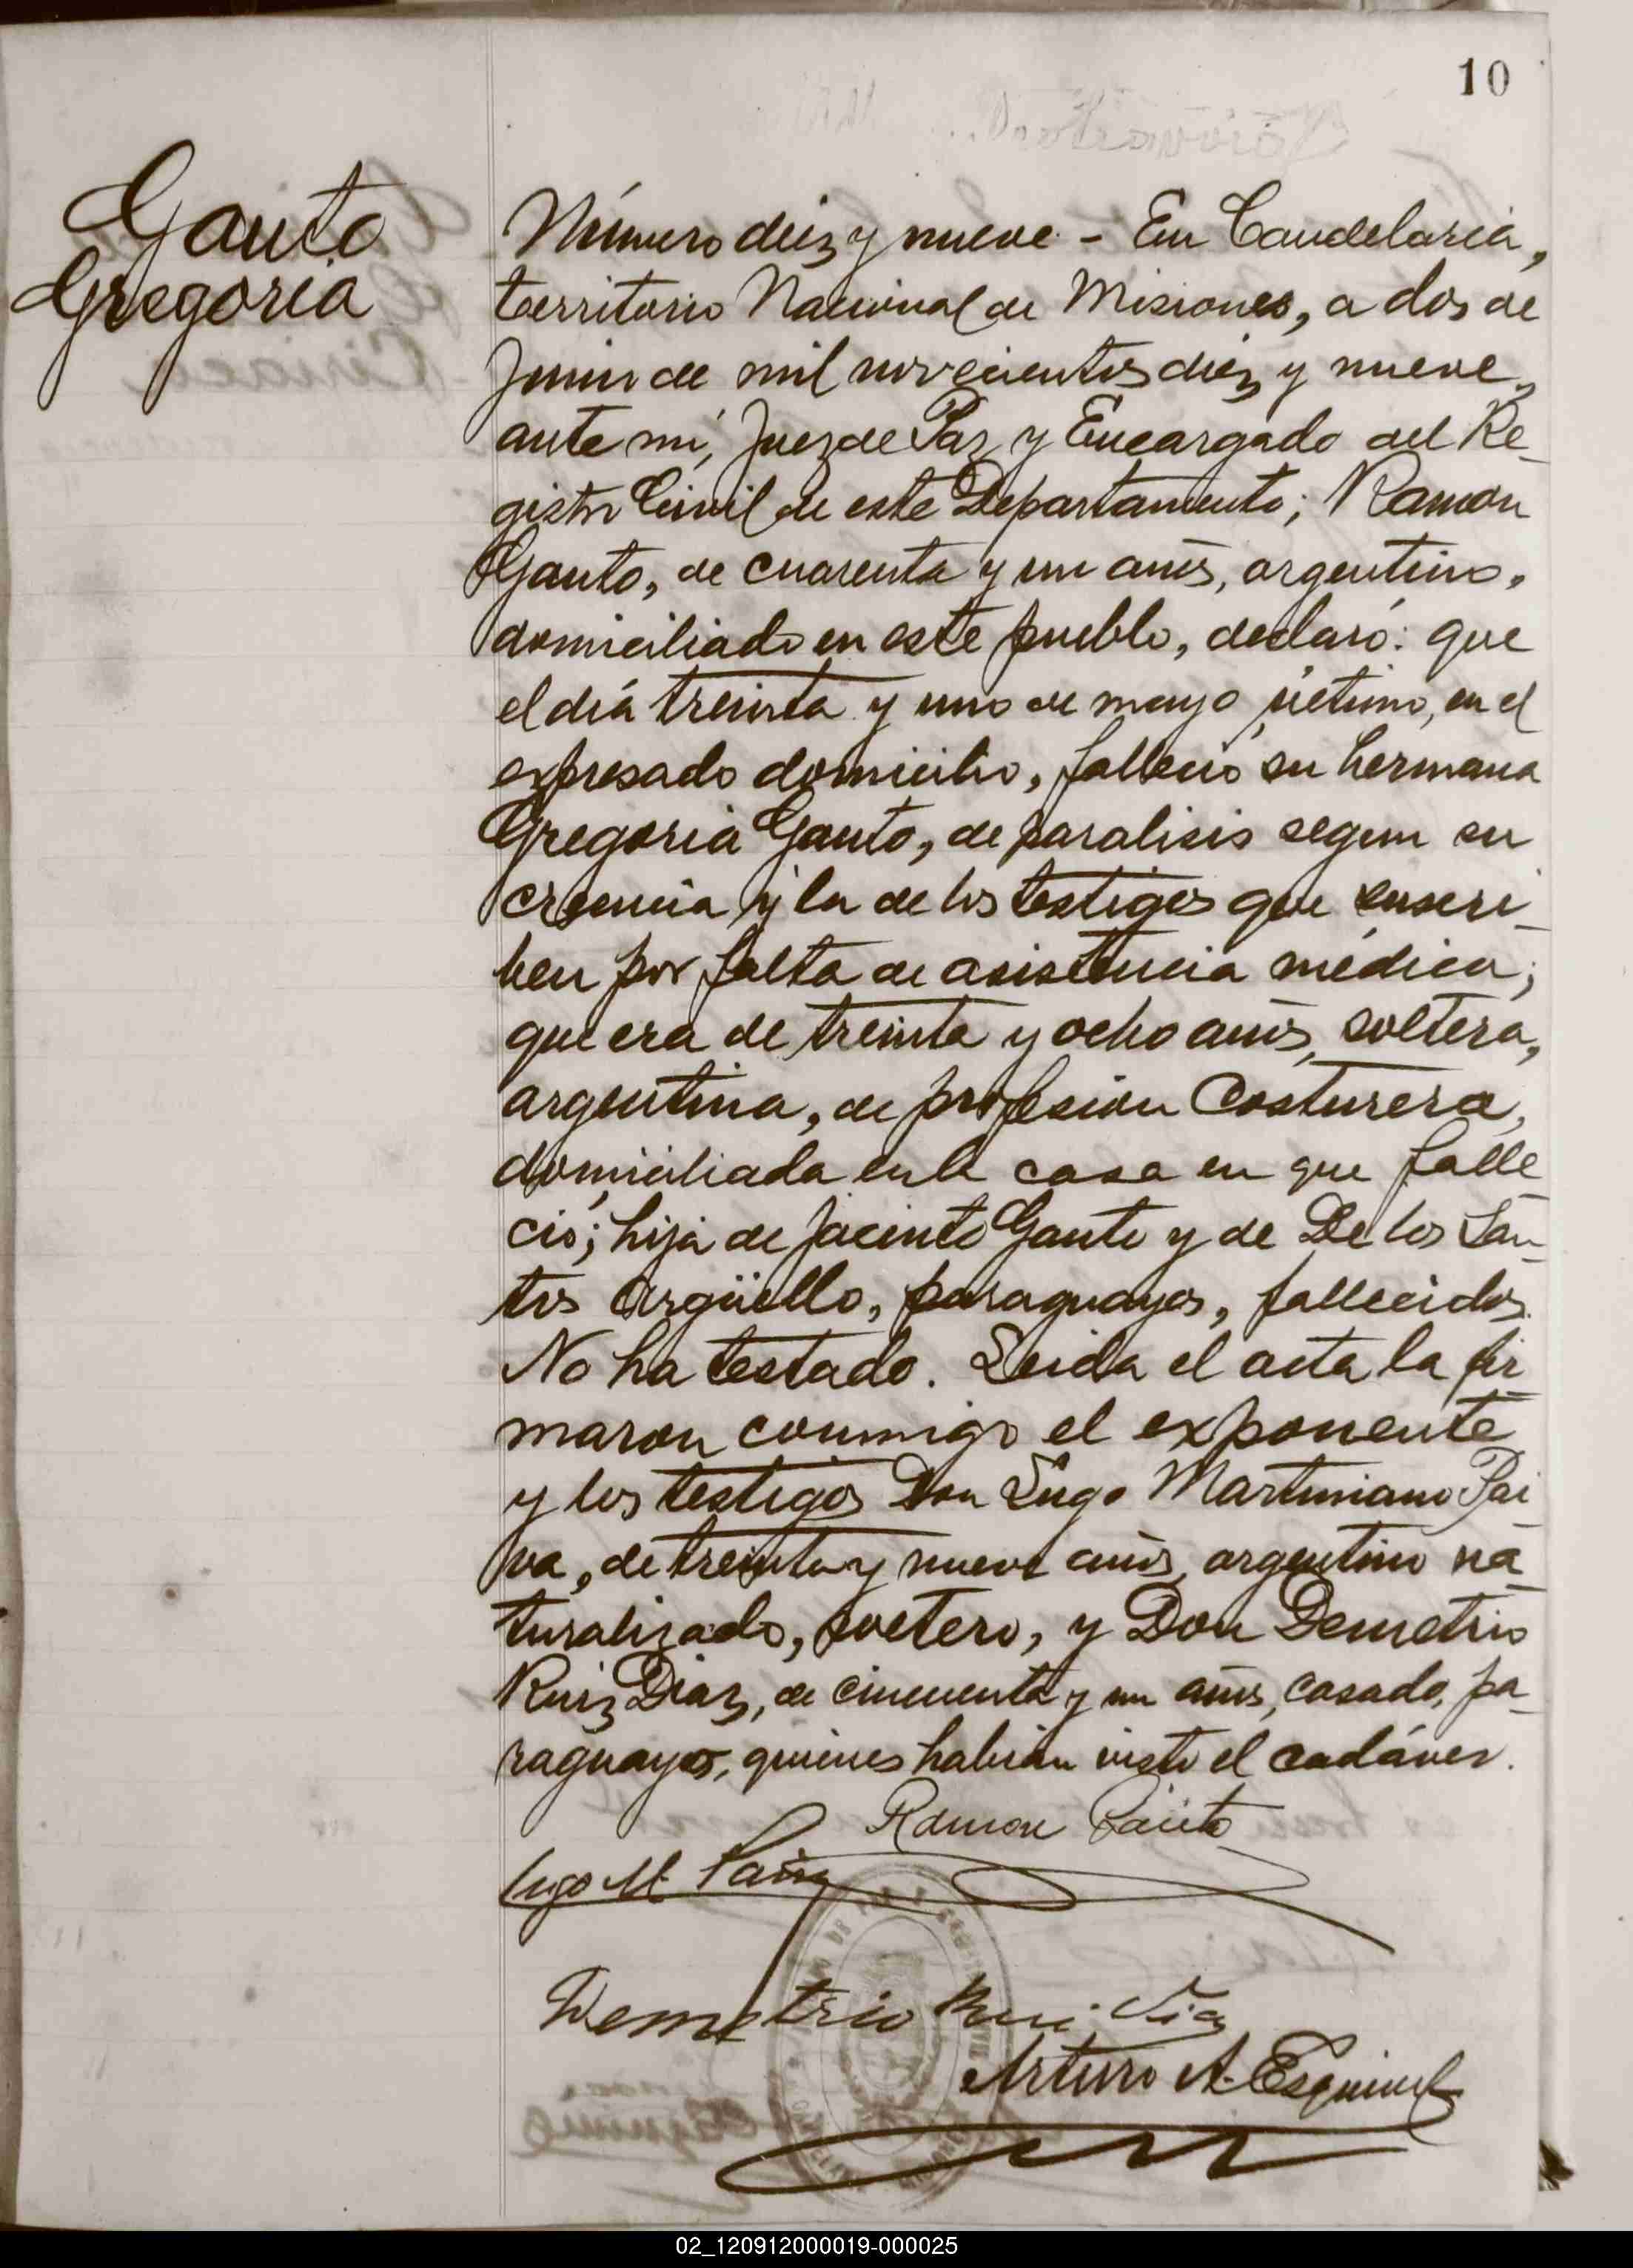 10
Gauto
Gregoria
Número diez y nueve - En Candelaria,
territorio Nacional de Misiones, a dos de
Junio de mil novecientos diez y nueve,
ante mí, Juez de Paz y Encargado del Re-
gistro Civil de este Departamento; Ramon
Gauto, de cuarenta y un años, argentino,
domiciliado en este pueblo, declaró: que
el día treinta y uno de mayo último, en el
expresado domicilio, falleció su hermana
Gregoria Gauto, de paralisis segun su
creencia y la de los testigos que suscri-
ben por falta de asistencia médica;
que era de treinta y ocho años, soltera,
argentina, de profesion Costurera,
domiciliada en la casa en que falle
ció; hija de Jacinto Gauto y de De los San-
tos Argüello, paraguayos, fallecidos.
No ha testado. Leida el acta la fir-
maron conmigo el exponente
y los testigos Don Lugo Martiniano Pai
va, de treinta y nueve años, argentino na-
turalizado, soltero, y Don Demetrio
Ruiz Diaz, de cincuenta y un años, casado, pa-
raguayo, quienes habian visto el cadáver.
Ramon Gauto
Lugo M. Paiva
Demetrio Rui Diaz
Arturo A. Esquivel
02_120912000019-000025